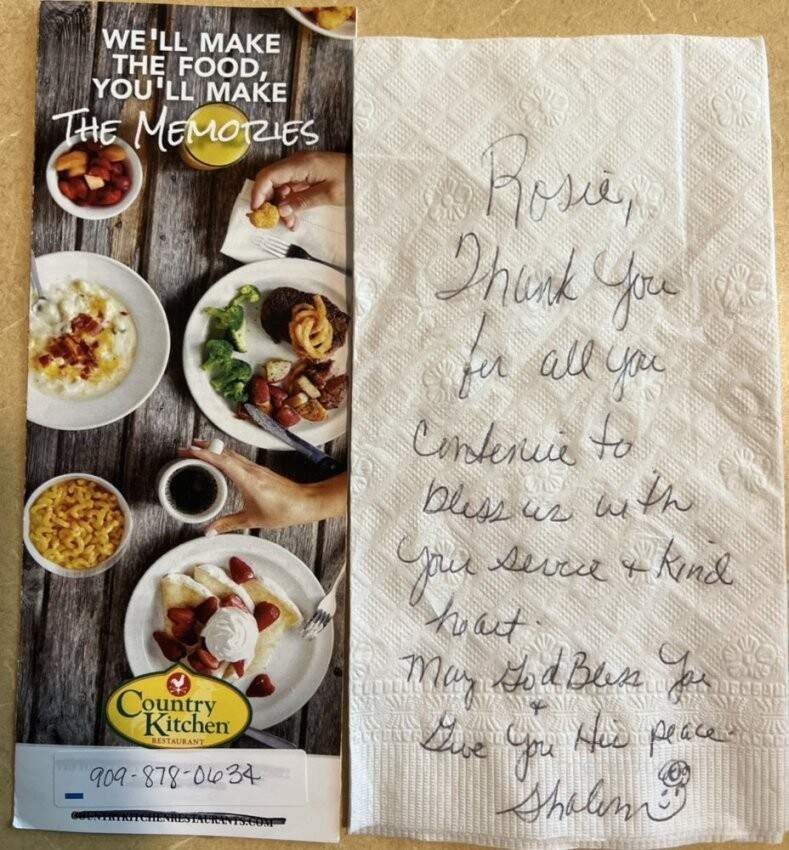 WE'LL MAKE
THE FOOD,
YOU'LL MAKE
THE MEMORIES
Country
Kitchen
RESTAURANT
909-878-0634
COUNTRYKITCHENRESTAURANTS.COM
Rosie,
Thank You
for all you
Contenue to
bless us with
your servce & kind
heart.
May God Bless You
&
Give You His peace
Shalom